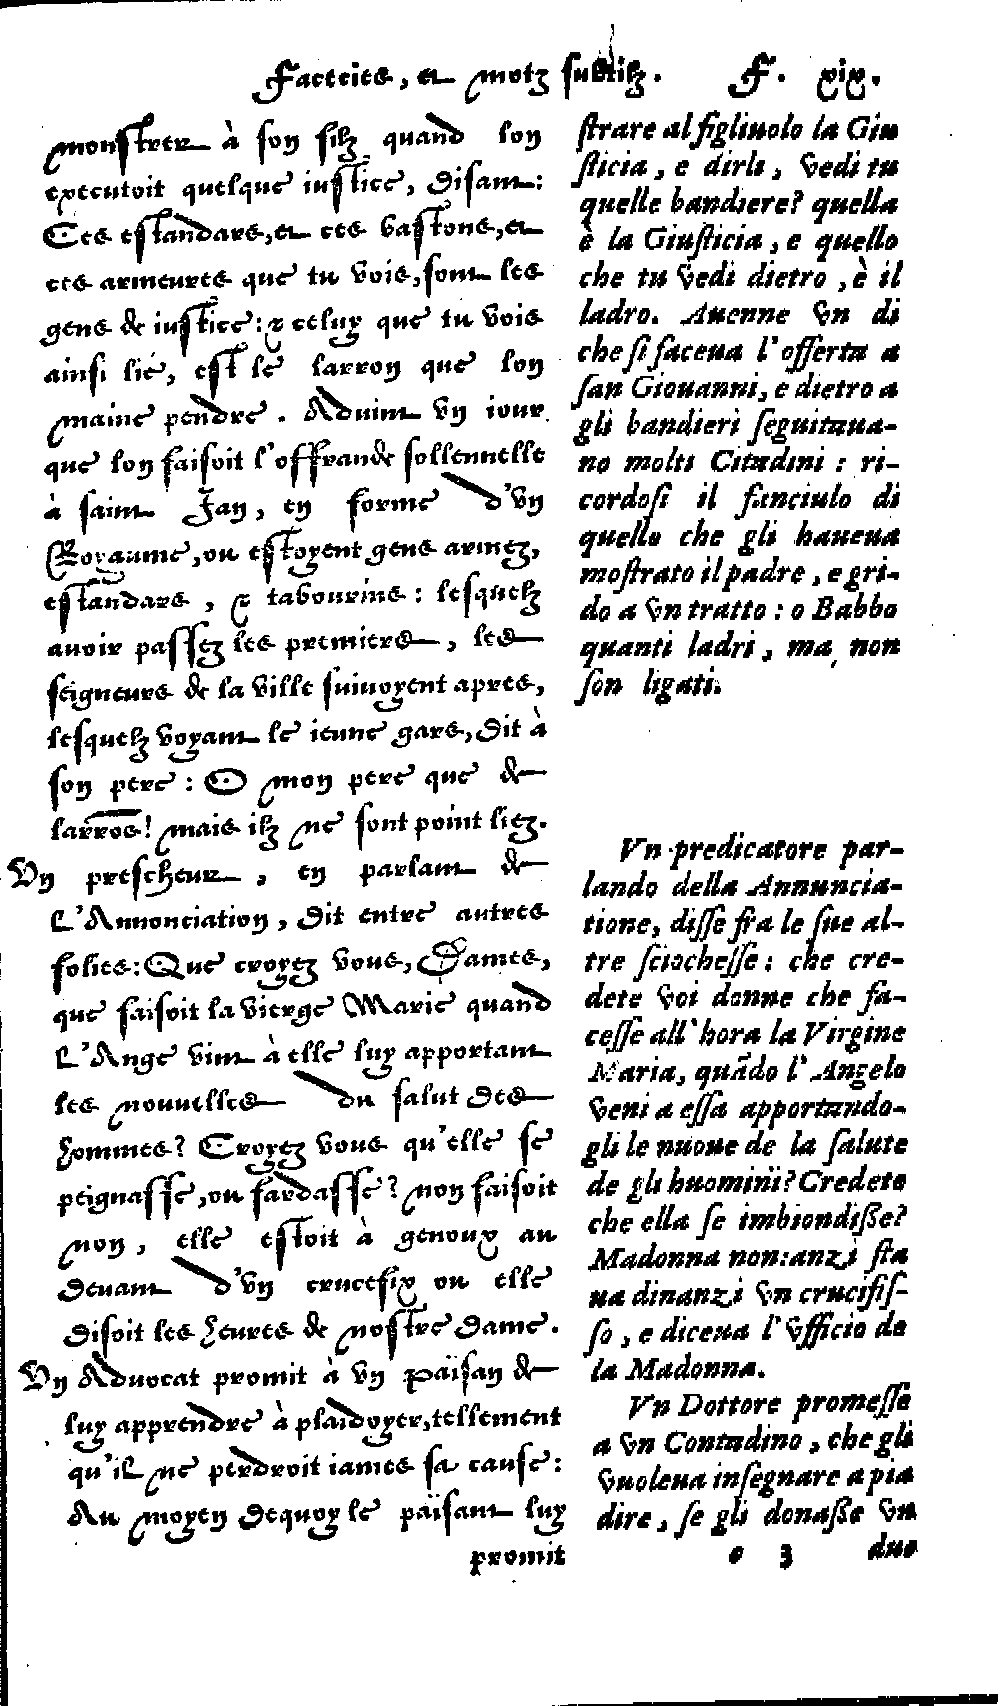 Faceties, et motz subtilz. F. xix.
monstrer à son filz quand lon
executoit quelque iustice, disant:
Ces estandars, et ces bastons, et
ces armeures que tu vois, sont les
gens de iustice: & celuy que tu vois
ainsi lié, est le larron que lon
maine pendre. Aduint vn iour
que lon faisoit l'offrande sollennelle
à saint Jan, en forme d'vn
Royaume, ou estoyent gens armez,
estandars, & tabourins: lesquelz
auoir passez les premiers, les
seigneurs de la ville suiuoyent apres,
lesquelz voyant le ieune gars, dit à
son pere: O mon pere que de
larrõs! mais ilz ne sont point liez.
Vn prescheur, en parlant de
L'Annonciation, dit entre autres
folies: Que croyez vous, Dames,
que faisoit la vierge Marie quand
L'Ange vint à elle luy apportant
les nouuelles du salut des
hommes? Croyez vous qu'elle se
peignasse, ou fardasse? non faisoit
non, elle estoit à genoux au
deuant d'vn crucefix ou elle
disoit les heures de nostre dame.
Vn Aduocat promit à vn païsan de
luy apprendre à plaidoyer, tellement
qu'il ne perdroit iames sa cause:
Au moyen dequoy le païsant luy
promit
strare al figliuolo la Giu
sticia, e dirli, vedi tu
quelle bandiere? quella
è la Giusticia, e quello
che tu vedi dietro, è il
ladro. Auenne vn di
che si faceua l'offerta a
san Giouanni, e dietro a
gli bandieri seguitaua-
no molti Citadini: ri-
cordosi il fanciulo di
quello che gli haueua
mostrato il padre, e gri-
do a vn tratto: o Babbo
quanti ladri, ma non
son ligati.
Vn predicatore par-
lando della Annuncia-
tione, disse fra le sue al-
tre sciochesse: che cre-
dete voi donne che fa-
cesse all'hora la Virgine
Maria, quãdo l'Angelo
veni a essa apportando-
gli le nuoue de la salute
de gli huomini? Credete
che ella se imbiondisse?
Madonna non: anzi sta
ua dinanzi vn crucifis-
so, e diceua l'vfficio de
la Madonna.
Vn Dottore promesse
a vn Contadino, che gli
vuoleua insegnare a pia
dire, se gli donasse vn
e 3 duo